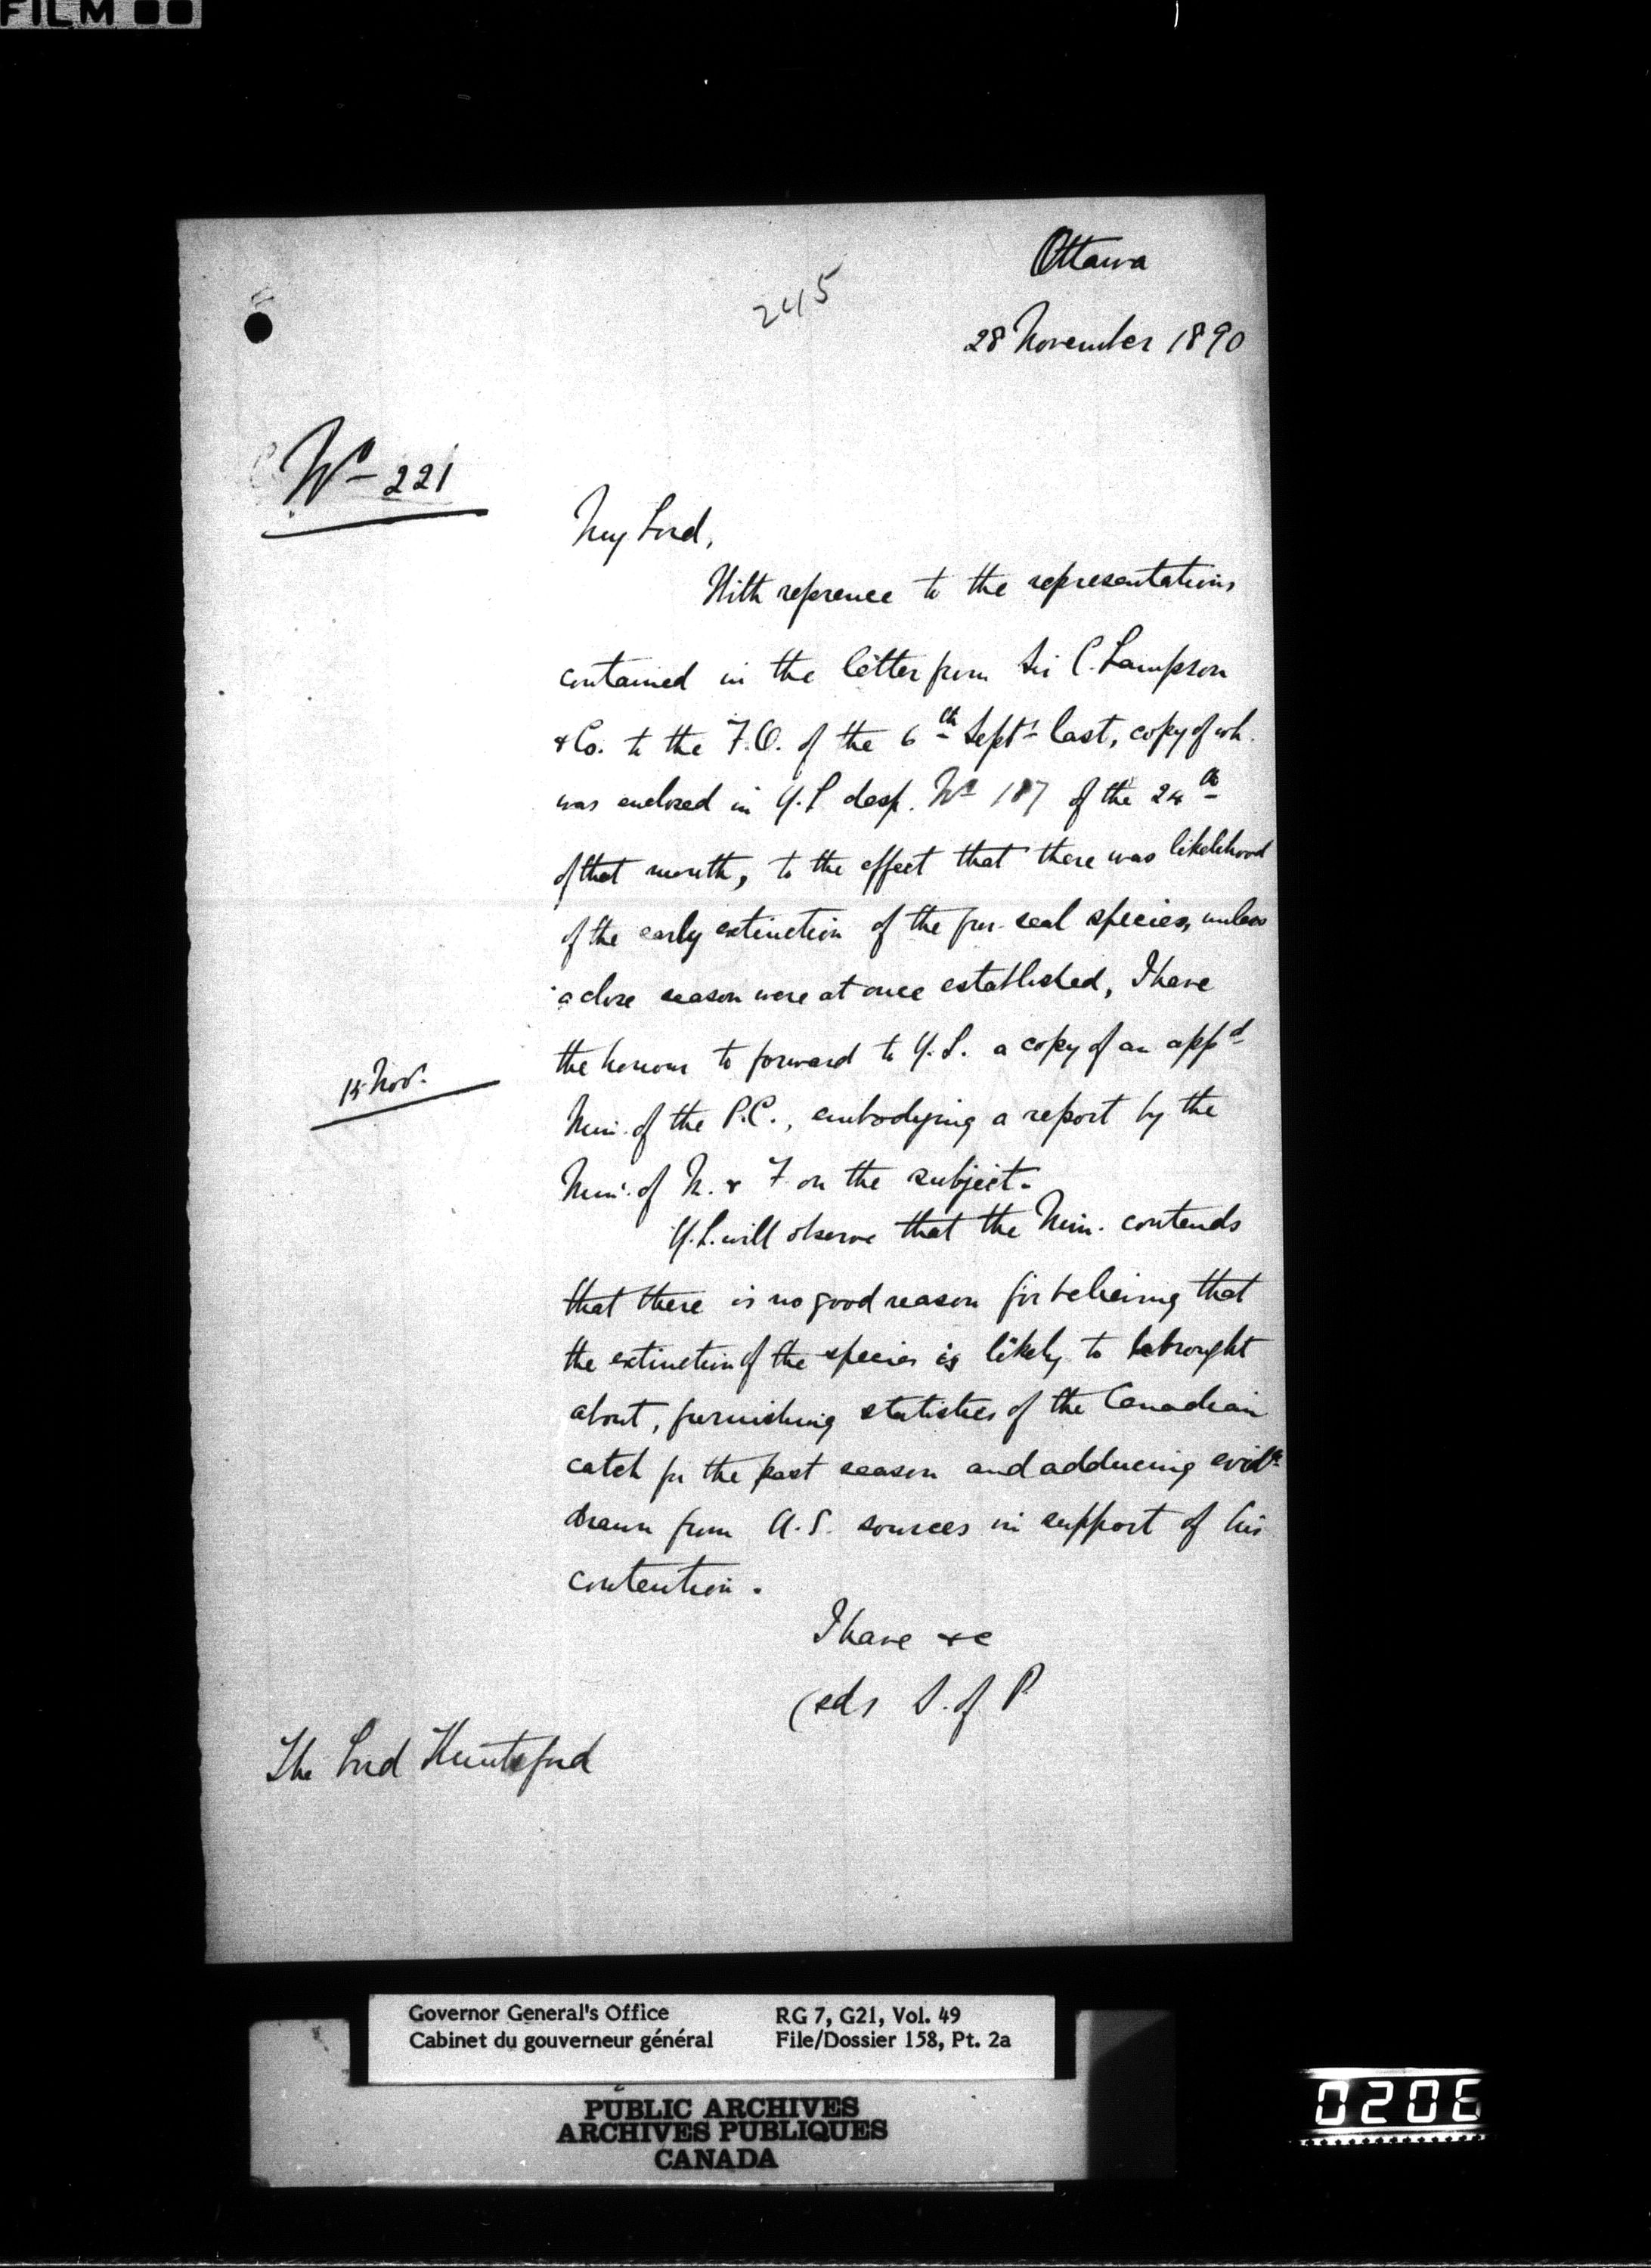 FILM
Ottawa
245
28 November 1890
No 221
My Lord,
With reference to the representations
contained in the letter from Sir C. Lampson
& Co. to the F.O. of the 6th Septr last, copy of wh.
was enclosed in Y.L desp. No 187 of the 24th
of that month, to the effect that there was likelihood
of the early extinction of the fur-seal species, unless
a close season were at once established, I have
the honour to forward to Y.L. a copy of an appd
15 Nov.
Min. of the P.C., embodying a report by the
Min. of M. & F. on the subject.
Y.L. will observe that the Min. contends
that there is no good reason for believing that
the extinction of the species is likely to be brought
about, furnishing statistics of the Canadian
catch for the past season and adducing evidce
drawn from U.S. sources in support of his
contention.
I have &c
(sd) S. of P.
The Lord Knutsford
Governor General's Office RG 7, G21, Vol. 49
Cabinet du gouverneur général File/Dossier 158, Pt. 2a
PUBLIC ARCHIVES
ARCHIVES PUBLIQUES
CANADA
0206